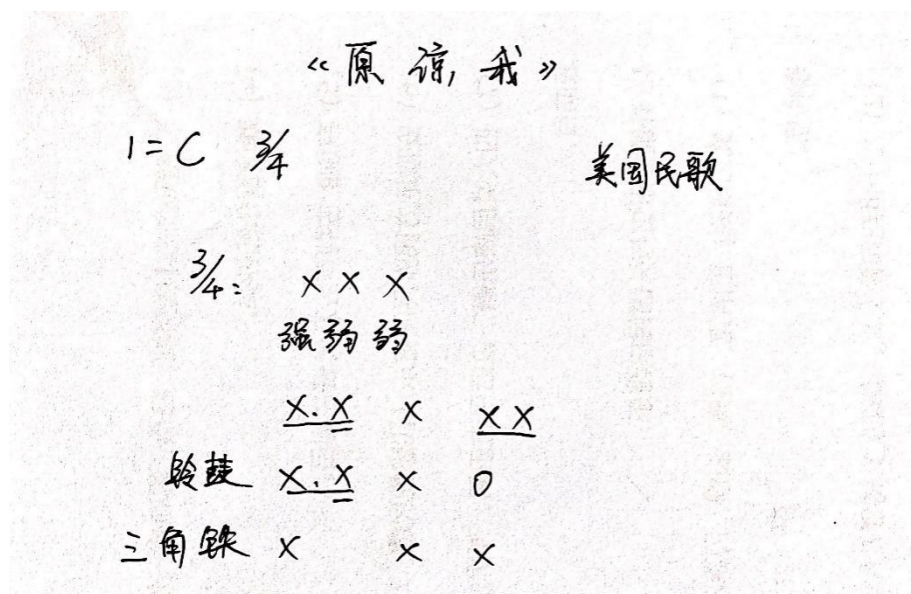 《原谅我》
1=C 3/4 美国民歌
3/4: X X X
强弱弱
X. X X X X
铃鼓 X. X X 0
三角铁 X X X